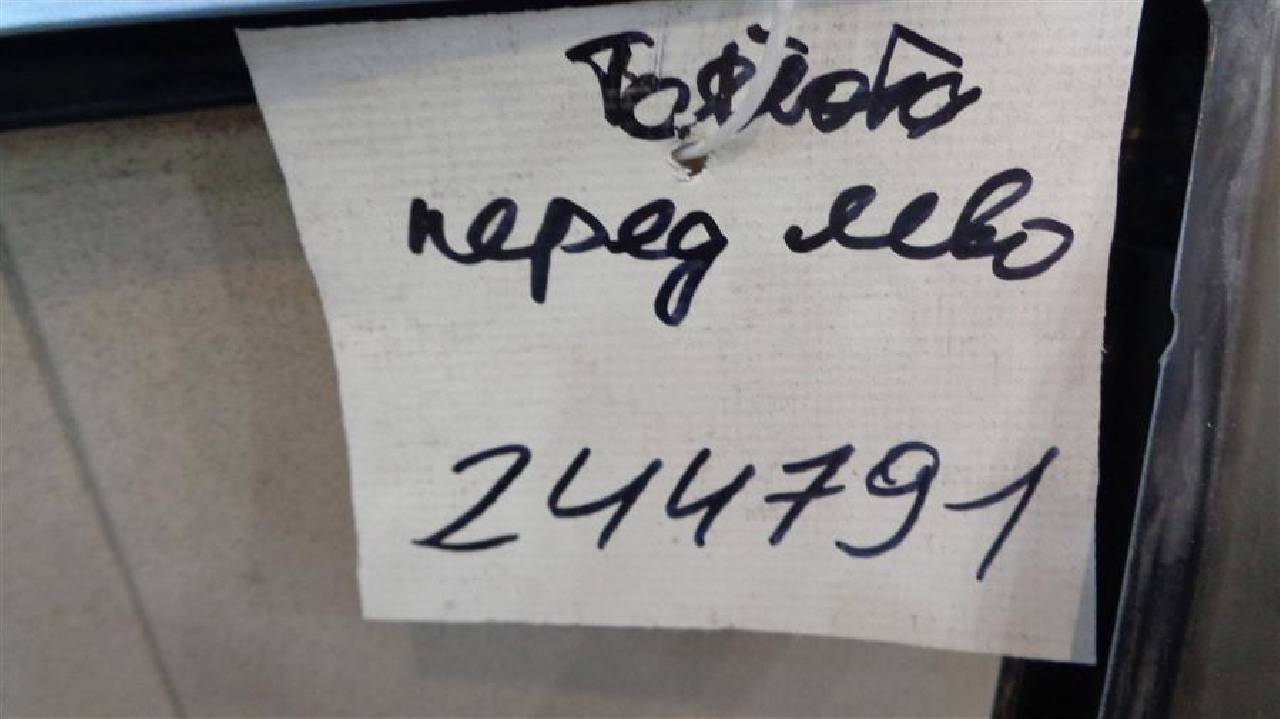 Тойота
перед лево
244791